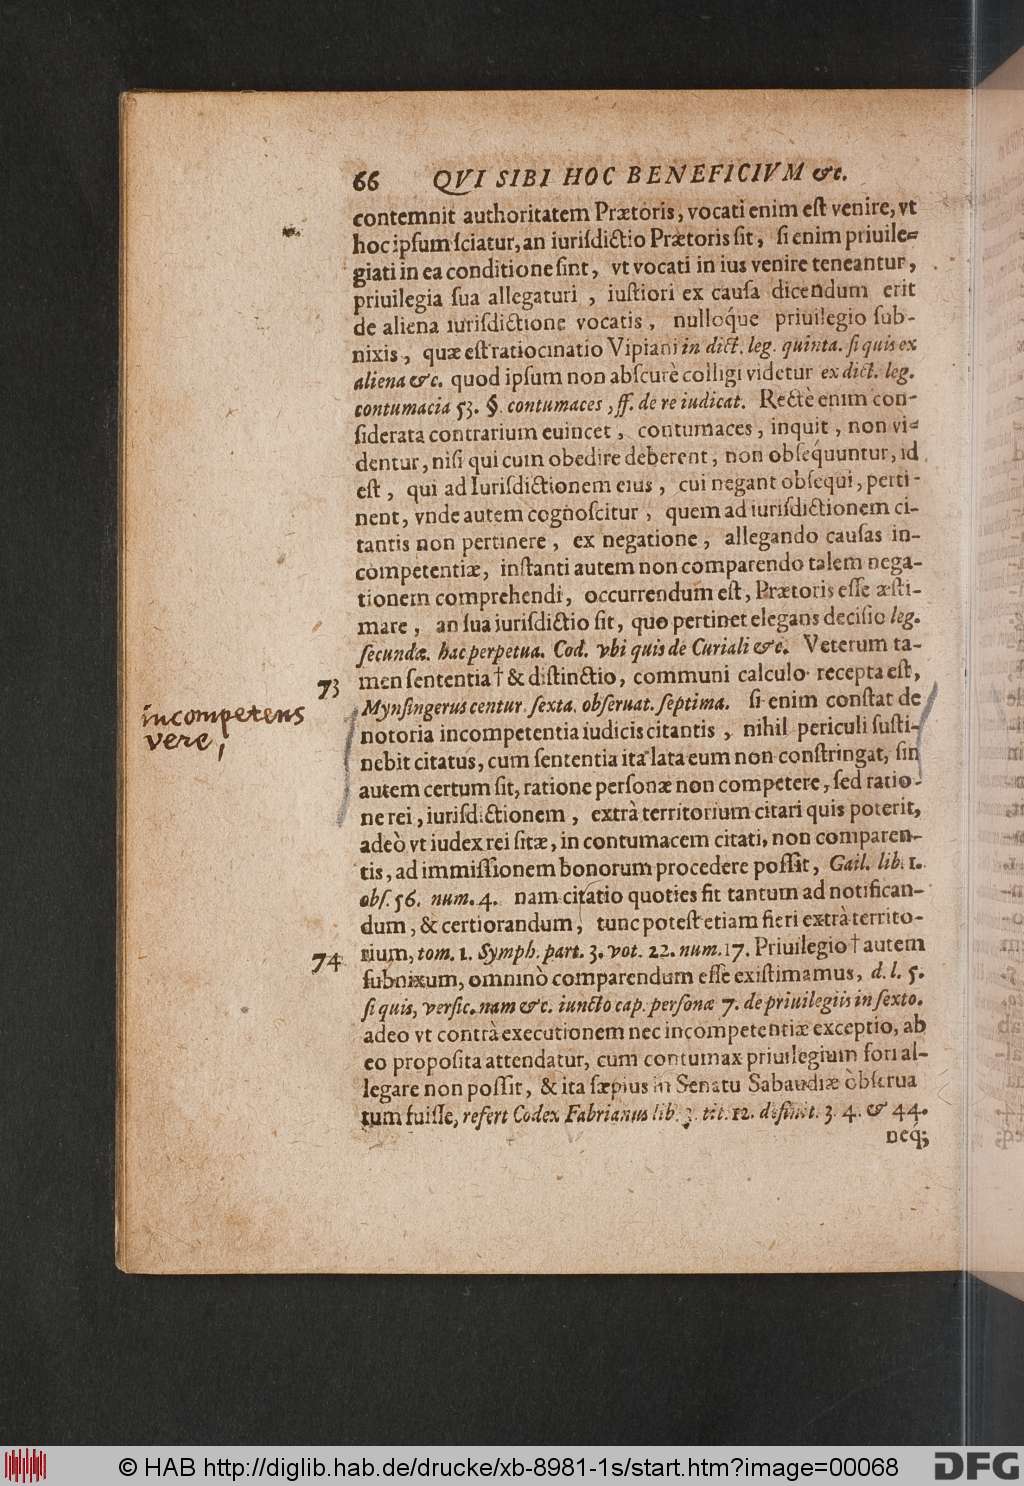 66 QVI SIBI HOC BENEFICIVM &c.
contemnit authoritatem Prætoris, vocati enim eſt venire, vt
hoc ipſum ſciatur, an iuriſdictio Prætoris ſit, ſi enim priuile=
giati in ea conditione ſint, vt vocati in ius venire teneantur,
priuilegia ſua allegaturi, iuſtiori ex cauſa dicendum erit
de aliena iuriſdictione vocatis, nulloq́ue priuilegio ſub-
nixis, quæ eſt ratiocinatio Vlpiani in dict. leg. quinta. ſi quis ex
aliena &c. quod ipſum non abſcurè colligi videtur ex dict. leg.
contumacia 53. §. contumaces, ff. de re iudicat. Rectè enim con-
ſiderata contrarium euincet, contumaces, inquit, non vi=
dentur, niſi qui cum obedire deberent, non obſequuntur, id
eſt, qui ad Iuriſdictionem eius, cui negant obſequi, perti-
nent, vnde autem cognoſcitur, quem ad iuriſdictionem ci-
tantis non pertinere, ex negatione, allegando cauſas in-
competentiæ, inſtanti autem non comparendo talem nega-
tionem comprehendi, occurrendum eſt, Prætoris eſſe æſti-
mare, an ſua iuriſdictio ſit, quo pertinet elegans deciſio leg.
ſecundæ. hac perpetua. Cod. vbi quis de Curiali &c. Veterum ta-
73 men ſententia† & diſtinctio, communi calculo recepta eſt,
Mynſingerus centur. ſexta. obſeruat. ſeptima. ſi enim conſtat de
incompetens
vere,
notoria incompetentia iudicis citantis, nihil periculi ſuſti-
nebit citatus, cum ſententia ita lata eum non conſtringat, ſin
autem certum ſit, ratione perſonæ non competere, ſed ratio-
ne rei, iuriſdictionem, extrà territorium citari quis poterit,
adeò vt iudex rei ſitæ, in contumacem citati, non comparen-
tis, ad immiſſionem bonorum procedere poſſit, Gail. lib. 1.
obſ. 56. num. 4. nam citatio quoties fit tantum ad notifican-
dum, & certiorandum, tunc poteſt etiam fieri extrà territo-
74 rium, tom. 1. Symph. part. 3. vot. 22. num. 17. Priuilegio† autem
ſubnixum, omninò comparendum eſſe exiſtimamus, d. l. 5.
ſi quis, verſic. nam &c. iuncto cap. perſonæ 7. de priuilegiis in ſexto.
adeo vt contrà executionem nec incompetentiæ exceptio, ab
eo propoſita attendatur, cum contumax priuilegium fori al-
legare non poſſit, & ita ſæpius in Senatu Sabaudiæ obſerua
tum fuiſſe, refert Codex Fabrianus lib. 3. tit. 12. definit. 3. 4. & 44.
neq́;
© HAB http://diglib.hab.de/drucke/xb-8981-1s/start.htm?image=00068
DFG